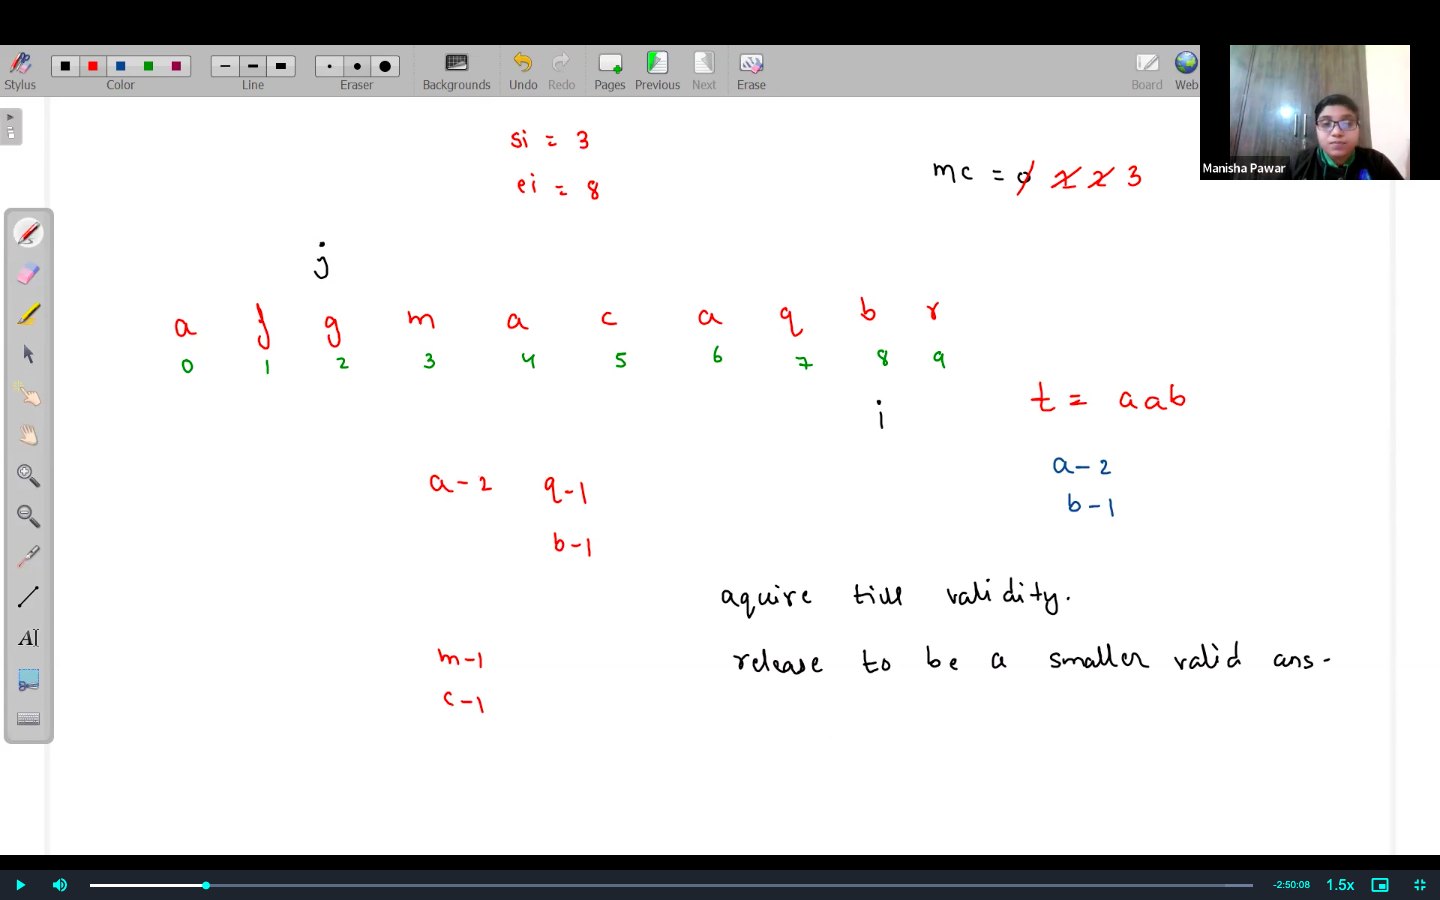 Stylus
Color
Line
Eraser
Backgrounds
Undo
Redo
Pages
Previous
Next
Erase
Board
Web
Manisha Pawar
si = 3
ei = 8
mc = 0 1 2 3
j
a f g m a c a q b r
0 1 2 3 4 5 6 7 8 9
i
t = aab
a - 2
b - 1
a - 2 q - 1
b - 1
aquire till validity.
m - 1
c - 1
release to be a smaller valid ans.
-2:50:08
1.5x